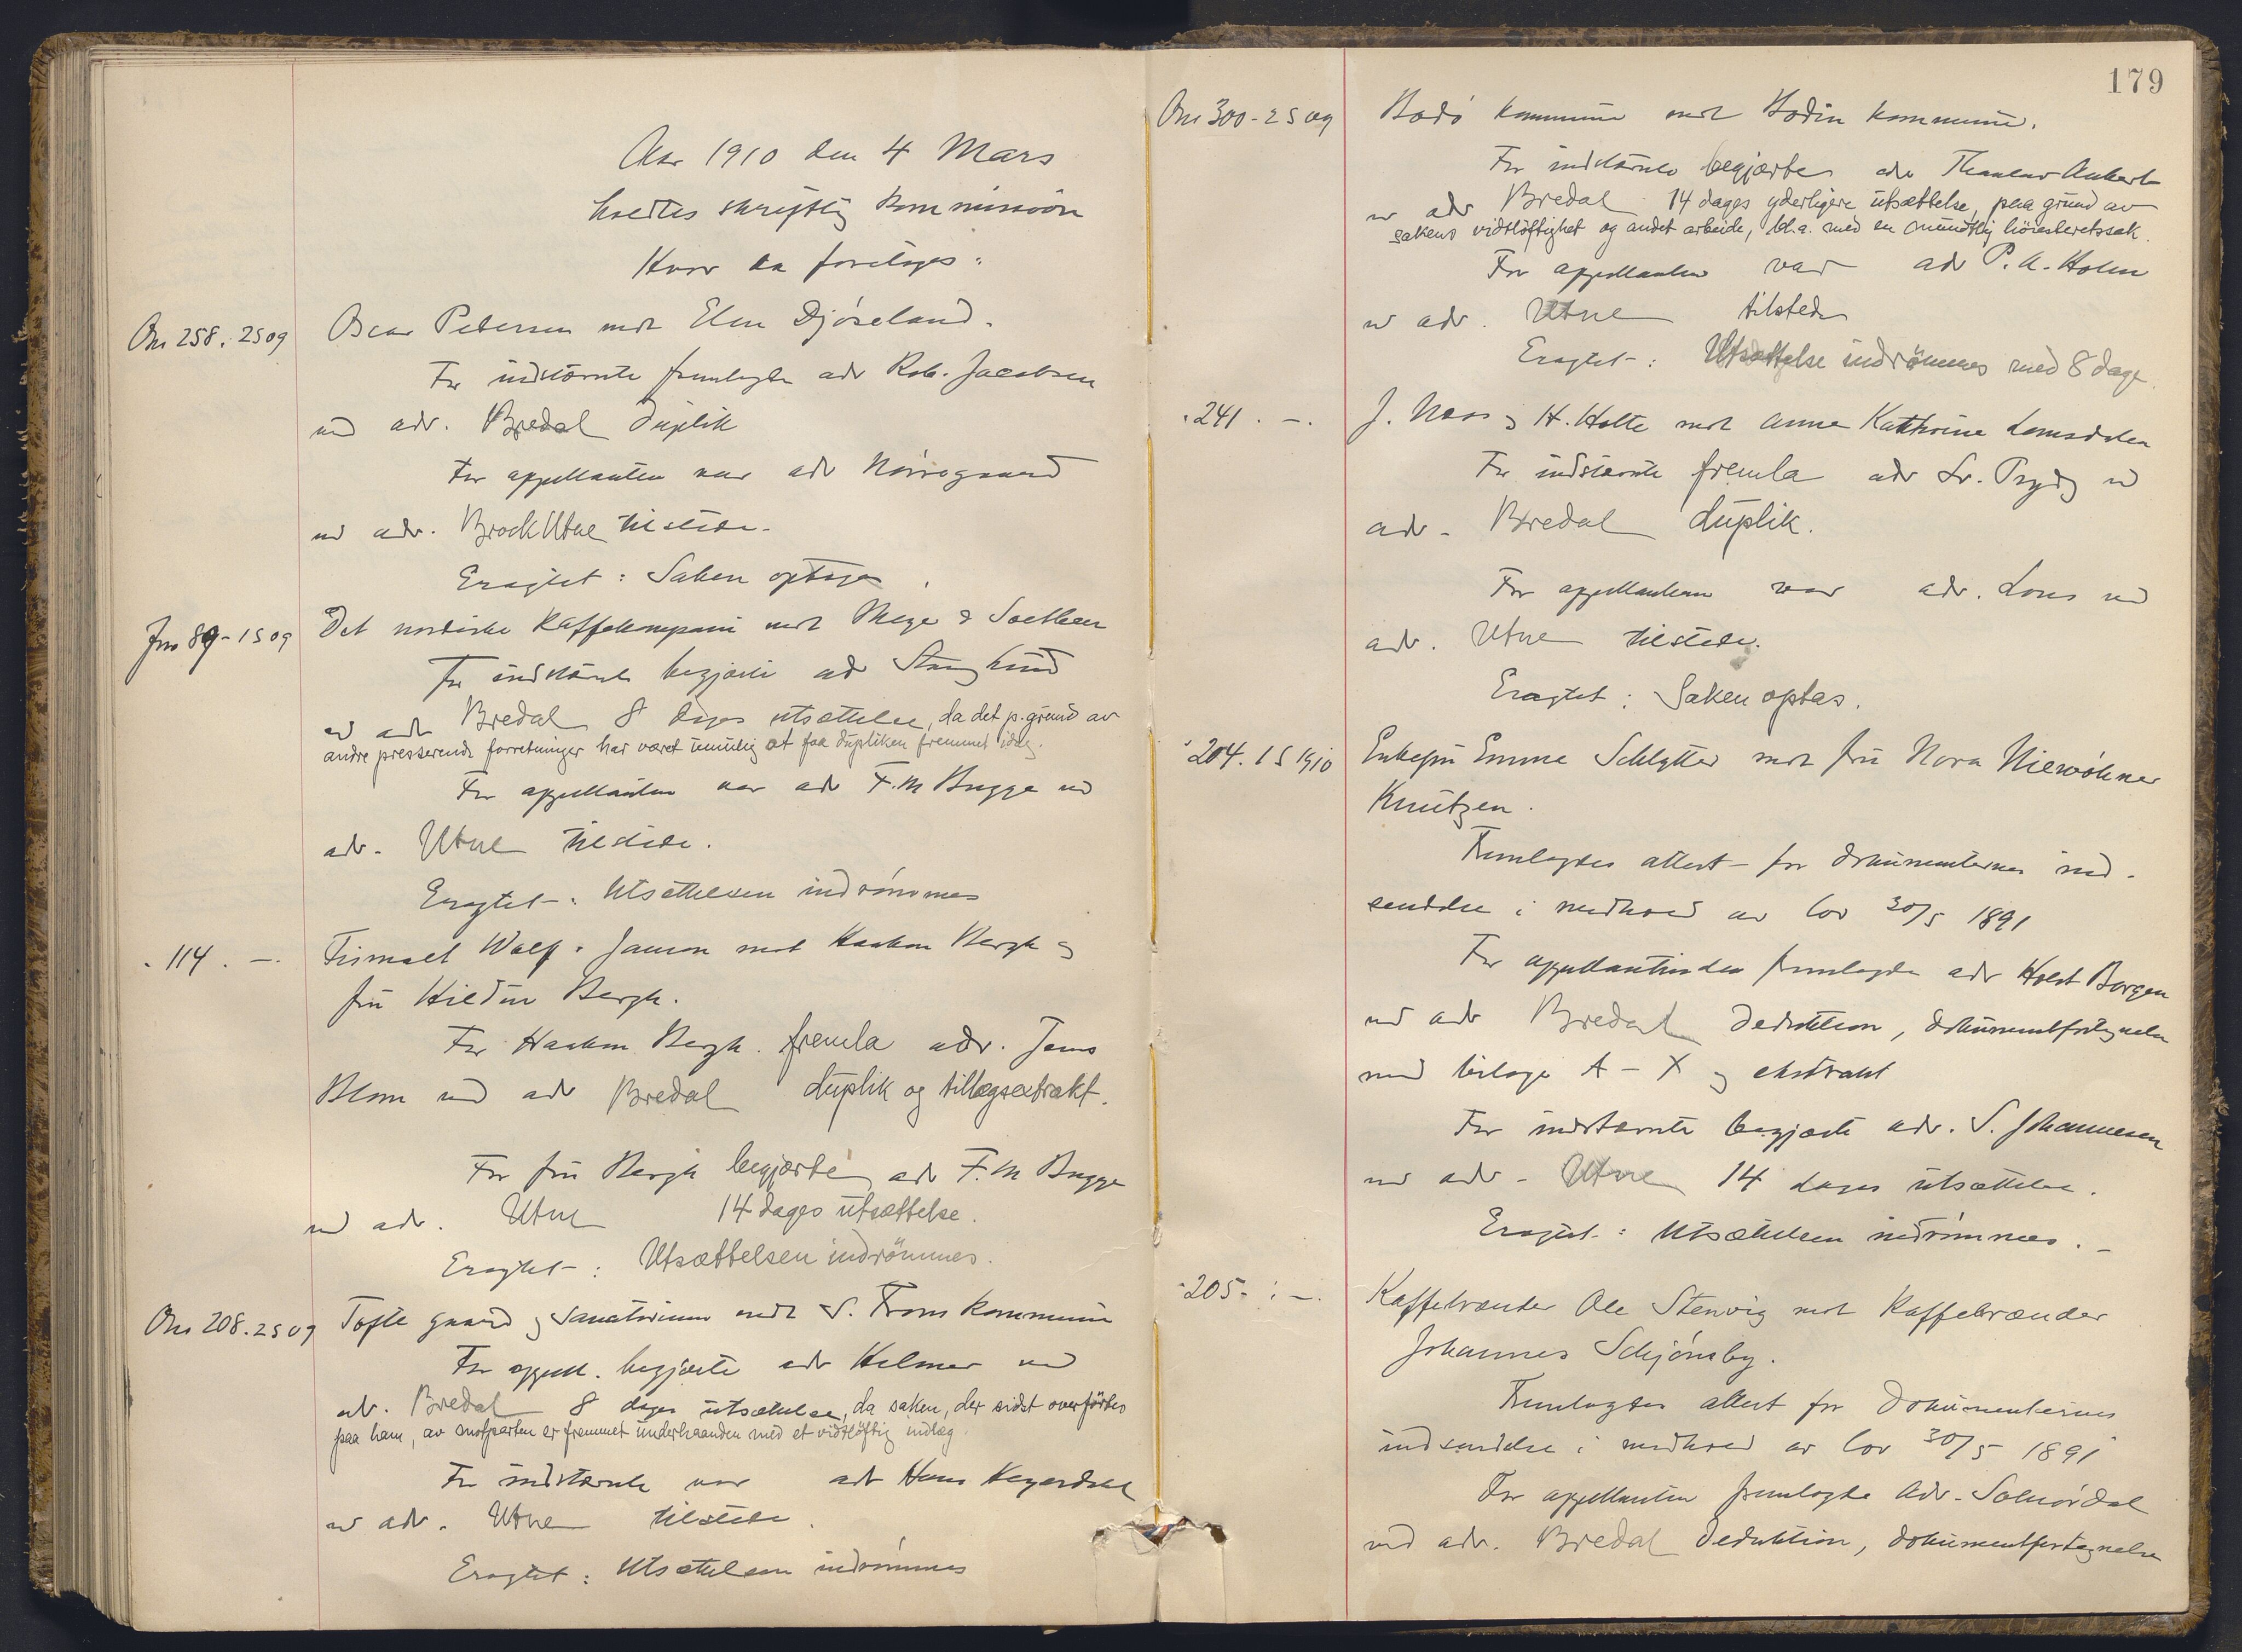 Aar 1910 den 4 Mars
holdtes skriftlig kommission
Hvor da foretoges:
On 258. 2 S 09
Oscar Petersen mot Elen Djöseland.
For indstævnte fremlagde adv Rob. Jacobsen
ved adv. Bredal duplik
For appellanten var adv Nörregaard
ved adv. Brock Utne tilstede.
Eragtet: Saken optages.
Jm 89 - 1 S 09
Det nordiske Kaffekompani mot & Soelberg
For indstævnte begjærte adv Stang Lund
ved adv Bredal 8 dages utsættelse, da det p. grund av
andre presserende forretninger har været umulig at faa dupliken fremmet idag.
For appellanten var adv F. M Bugge ved
adv. Utne tilstede.
Eragtet: Utsættelsen indrömmes
" 114. —.
Firmaet Wolf & Janson mot Haakon Bergh og
fru Hildur Bergh.
For Haakon Bergh. fremla adv. Jens
Blom ved adv Bredal duplik og tillægsextrakt.
For fru Bergh begjærte adv F. M Bugge
ved adv. Utne 14 dages utsættelse.
Eragtet: Utsættelsen indrömmes.
On 208. 2 S 09
Tofte gaard og Sanatorium mot S. Frons kommune
For appell. begjærte adv Helmer ved
adv. Bredal 8 dages utsættelse, da saken, der sidst overförtes
paa ham, av motparten er fremmet underhaanden med et vidtlöftig indlæg.
For indstævnte var adv Hans
ved adv. Utne tilstede.
Eragtet: Utsættelsen indrömmes
179
On 300 - 2 S 09
Bodö kommune mot Bodin kommune.
For indstævnte begjærte adv Thaulow Aubert
ved adv Bredal 14 dages yderligere utsættelse, paa grund av
sakens vidtlöftighet og andet arbeide, bl. a. med en mundtlig höiesteretssak.
For appellanten var adv P. A. Holm
ved adv. Utne tilstede
Eragtet: Utsættelse indrömmes med 8 dage.
" 241. —.
J. Næss og H. Holte mot Anne Kathrine Lomsdalen
For indstævnte fremla adv Fr. Prydz ved
adv. Bredal duplik.
For appellanterne var adv. Lous ved
adv. Utne tilstede.
Eragtet: Saken optas.
" 204. 1 S 1910
Enkefru Emma Schlytter mot fru Nora Niewöhner
Knutzen.
Fremlagdes attest for dokumenternes ind-
sendelse i medhold av lov 30/5 1891
For appellantinden fremlagde adv Holst Borgen
ved adv Bredal deduktion, dokumentfortegnelse
med bilage A - X og ekstrakt
For indstævnte begjærte adv. S. Johannesen
ved adv. Utne 14 dages utsættelse.
Eragtet: Utsættelsen indrömmes. —
" 205. : —.
Kaffebrænder Ole Stenvig mot Kaffebrænder
Johannes Schjönsby.
Fremlagdes attest for dokumenternes
indsendelse i medhold av lov 30/5 1891
For appellanten fremlagde adv. Solnördal
ved adv. Bredal deduktion, dokumentfortegnelse